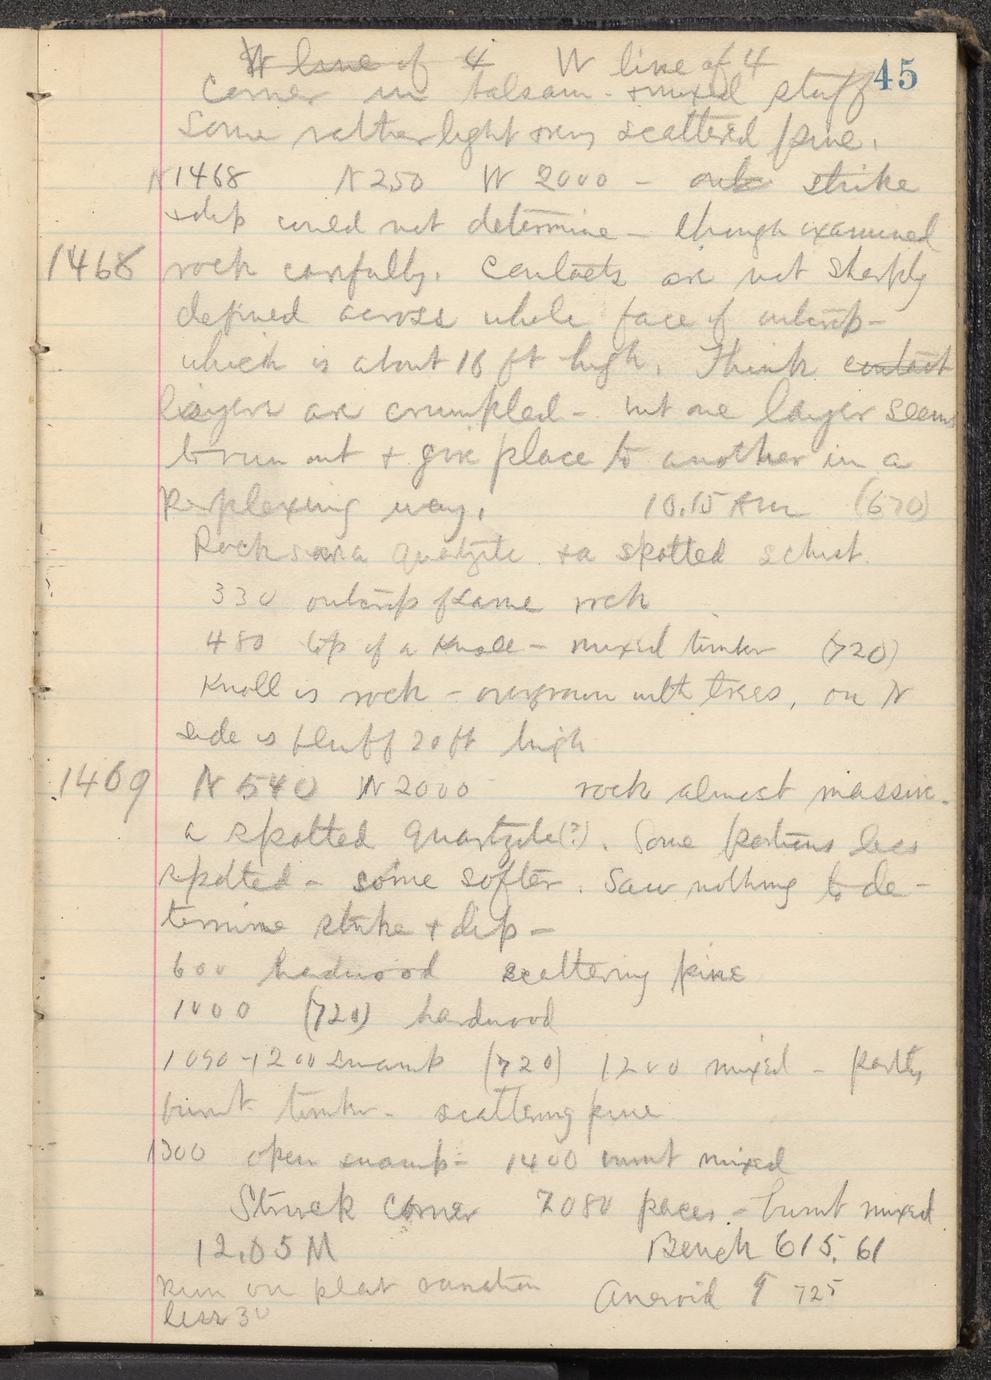 W line of 4 W line of 4
45
Corner in balsam - + mixed stuff
Some rather light very scattered pine.
N1468 N 250 W 2000 - strike
+ dip could not determine - though examined
1468 rock carfully. Contacts are not sharply
defined across whole face of outcrop -
which is about 16 ft high. Think contact
layers are crumpled - but one layer seems
to run out + give place to another in a
perplexing way. 10.15 AM (670)
Rocks are a quartzite + a spotted schist.
330 outcrop of same rock
480 top of a knoll - mixed timber (720)
Knoll is rock - overgrown with trees, on N
side is bluff 20 ft high
1469 N 540 W 2000 rock almost massive.
a spotted quartzite(?). Some portions less
spotted - some softer. Saw nothing to de-
termine strike + dip -
600 hardwood scattering pine
1000 (720) hardwood
1090 - 1200 swamp (720) 1200 mixed - partly
burnt timber - scattering pine
1300 open swamp - 1400 burnt mixed
Struck corner 2080 paces - burnt mixed
12.05 M Bench 615.61
Run on plat variation Aneroid 725
less 30